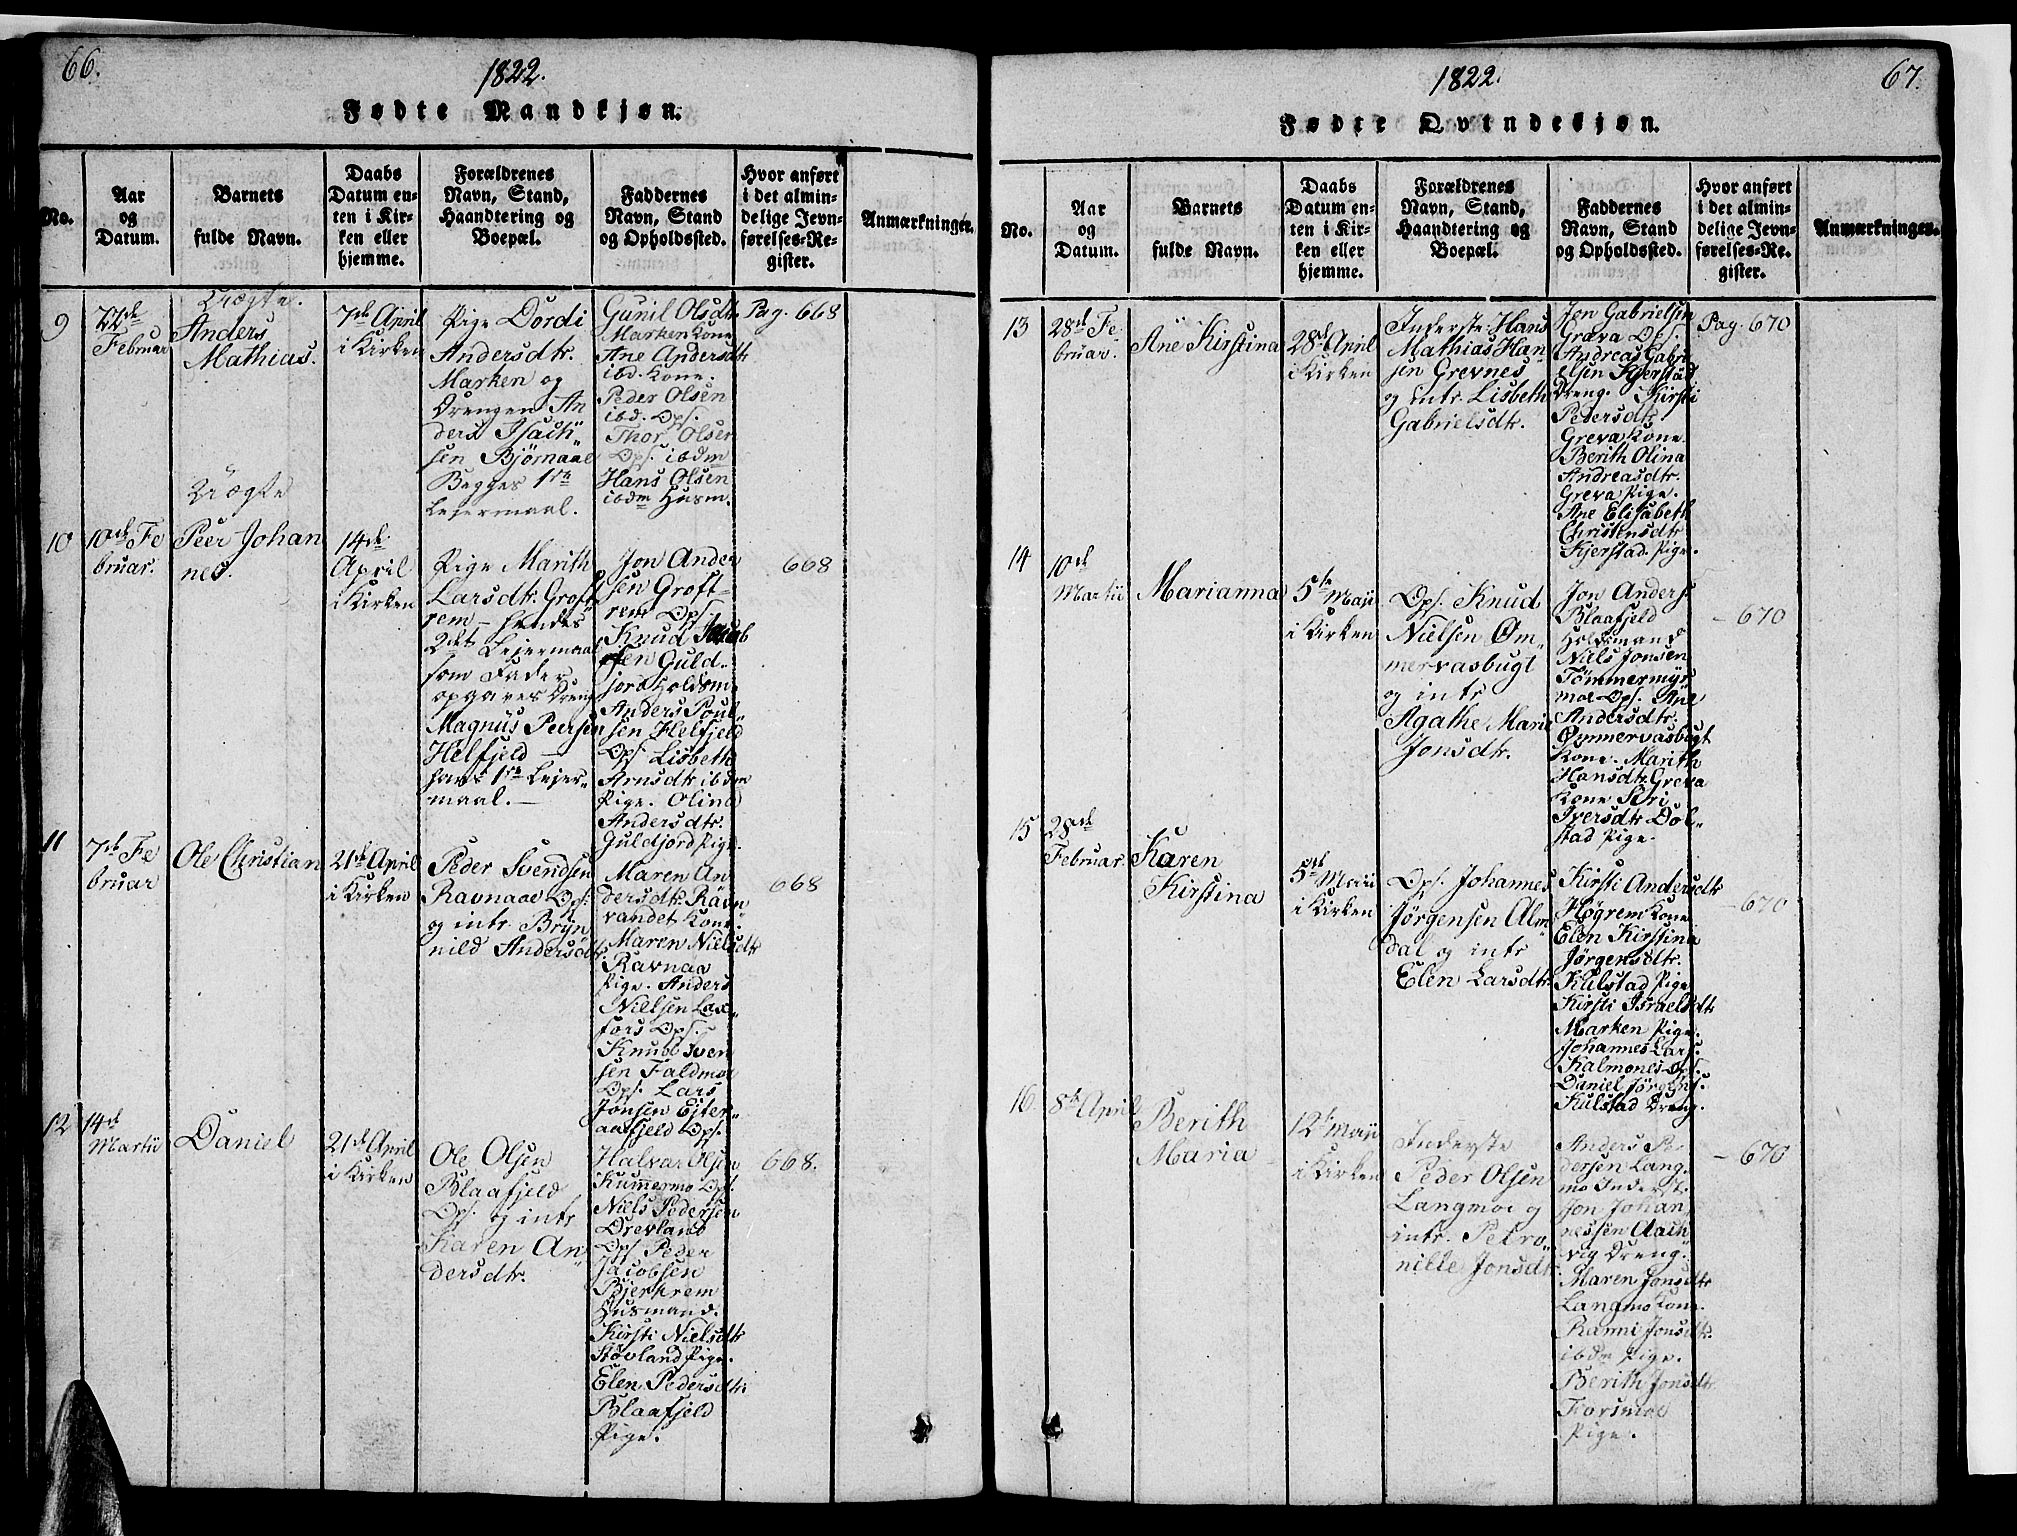 66.
1822.
Fødte Mandkjøn.
No.
Aar
og
Datum.
Barnets
fulde Navn.
Daabs
Datum en-
ten i Kir-
ken eller
hjemme.
Forældrenes
Navn, Stand,
Haandtering og
Boepæl.
Faddernes
Navn, Stand
og Opholdssted.
Hvor anført
i det almin-
delige Jevn-
førelses-Re-
gister.
Anmærkninger.
9
22de
Februar
Uægte.
Anders
Mathias.
7de April
i Kirken
Pige Dordi
Andersdtr.
Marken og
Drengen An
ders Isach„
sen Bjørnaae
Begges 1ste
Lejermaal.
Gunil Olsdtr.
Marken Kone
Ane Andersdtr
ibd. Kone.
Peder Olsen
ibd. Ops.
Thor Olsen
Ops. ibdm
Hans Olsen
ibdm Husm.
Pag. 668
10
10de Fe
bruar.
Uægte
Peer Johan
nes.
14de
April
i Kirken
Pige Marith
Larsdtr. Groft„
rem – hendes
2det Lejermaal
som Fader
opgaves Dreng
Magnus Peersen
Helfjeld –
hans 1ste Lejer-
maal. –
Jon Ander
sen Groft-
rem Ops.
Knud Jacob
sen Guld-
jord Holdsm.
Anders Poul-
sen Helfjeld
Ops. Lisbeth
Arnsdtr ibdm
Pige. Olina
Andersdtr.
Guldjord Pige.
668
11
7de Fe
bruar
Ole Christian
21de April
i Kirken
Peder Svendsen
Ravnaae Ops.
og intr. Bryn
nild Andersdtr.
Maren An
dersdtr. Räv„
vandet Kone.
Maren Nielsdtr
Ravnaa
Pige. Anders
Nielsen Lax„
fors Ops.
Knud Sven
sen Faldmoe
Ops. Lars
Jonsen Ejter„
aafjeld Ops.
668
12
14de
Martii
Daniel
21de April
i Kirken
Ole Olsen
Blaafjeld
Ops. og intr
Karen An„
dersdtr.
Halvar Olsen
Kummermo Ops.
Niels Pedersen
Drevland
Ops. Peder
Jacobsen
Bjerkrem
Husmand.
Kirsti Nielsdtr
Støvland Pige.
Elen Pedersdtr.
Blaafjeld
Pige.
668.
1822.
67.
Fødte Qvindekjøn.
No.
Aar
og
Datum.
Barnets
fulde Navn.
Daabs
Datum en-
ten i Kir-
ken eller
hjemme.
Forældrenes
Navn, Stand,
Haandtering og
Boepæl.
Faddernes
Navn, Stand
og Opholdssted.
Hvor anført
i det almin-
delige Jevn-
førelses-Re-
gister.
Anmærkninger.
13
28de Fe
bruar.
Ane Kirstina
28de April
i Kirken
Inderste Hans
Mathias Han„
sen Grevnes
og intr. Lisbeth
Gabrielsdtr.
Jon Gabrielsen
Greva Ops.
Andreas Gabri
elsen Kjerstad
Dreng. Kirsti
Pedersdtr
Greva Kone.
Berith Olina
Andreasdtr.
Greva Pige.
Ane Elisabeth
Christensdtr
Kjerstad. Pige.
Pag. 670
14
10de
Martii
Marianna
5te Maji
i Kirken
Ops. Knud
Nielsen Øm-
mervasbugt
og intr
Agathe Marie
Jonsdtr.
Jon Anders.
Blaafjeld
Holdsmand
Niels Jonsen
Tømmermyr
moe Ops. Ane
Andersdtr.
Ømmervasbugt
Kone. Marith
Hansdtr. Greva
Kone Siri
Iversdtr Dol-
stad Pige.
– 670
15
28de
Februar.
Karen
Kirstina
5te Maii
i Kirken
Ops. Johannes
Jørgensen Alm„
dal og intr
Elen Larsdtr.
Kirsti Andersdtr
Høgrem Kone
Elen Kirstina
Jørgensdtr.
Kulstad Pige
Kirsti Israelsdtr
Marken Pige.
Johannes Lars.
Kalmones Ops.
Daniel Jørgens.
Kulstad Dreng.
– 670
16.
8de April
Berith
Maria
12te Maji
i Kirken
Inderste
Peder Olsen
Langmoe og
intr. Petro„
nille Jonsdtr.
Anders Pe
dersen Lang.
mo Inderst.
Jon Johan„
nessen Aach„
vig Dreng.
Maren Jonsdtr
Langmo Kone.
Ranni Jonsdtr.
ibdm Pige.
Berith Jonsdtr
Forsmoe
Pige.
– 670